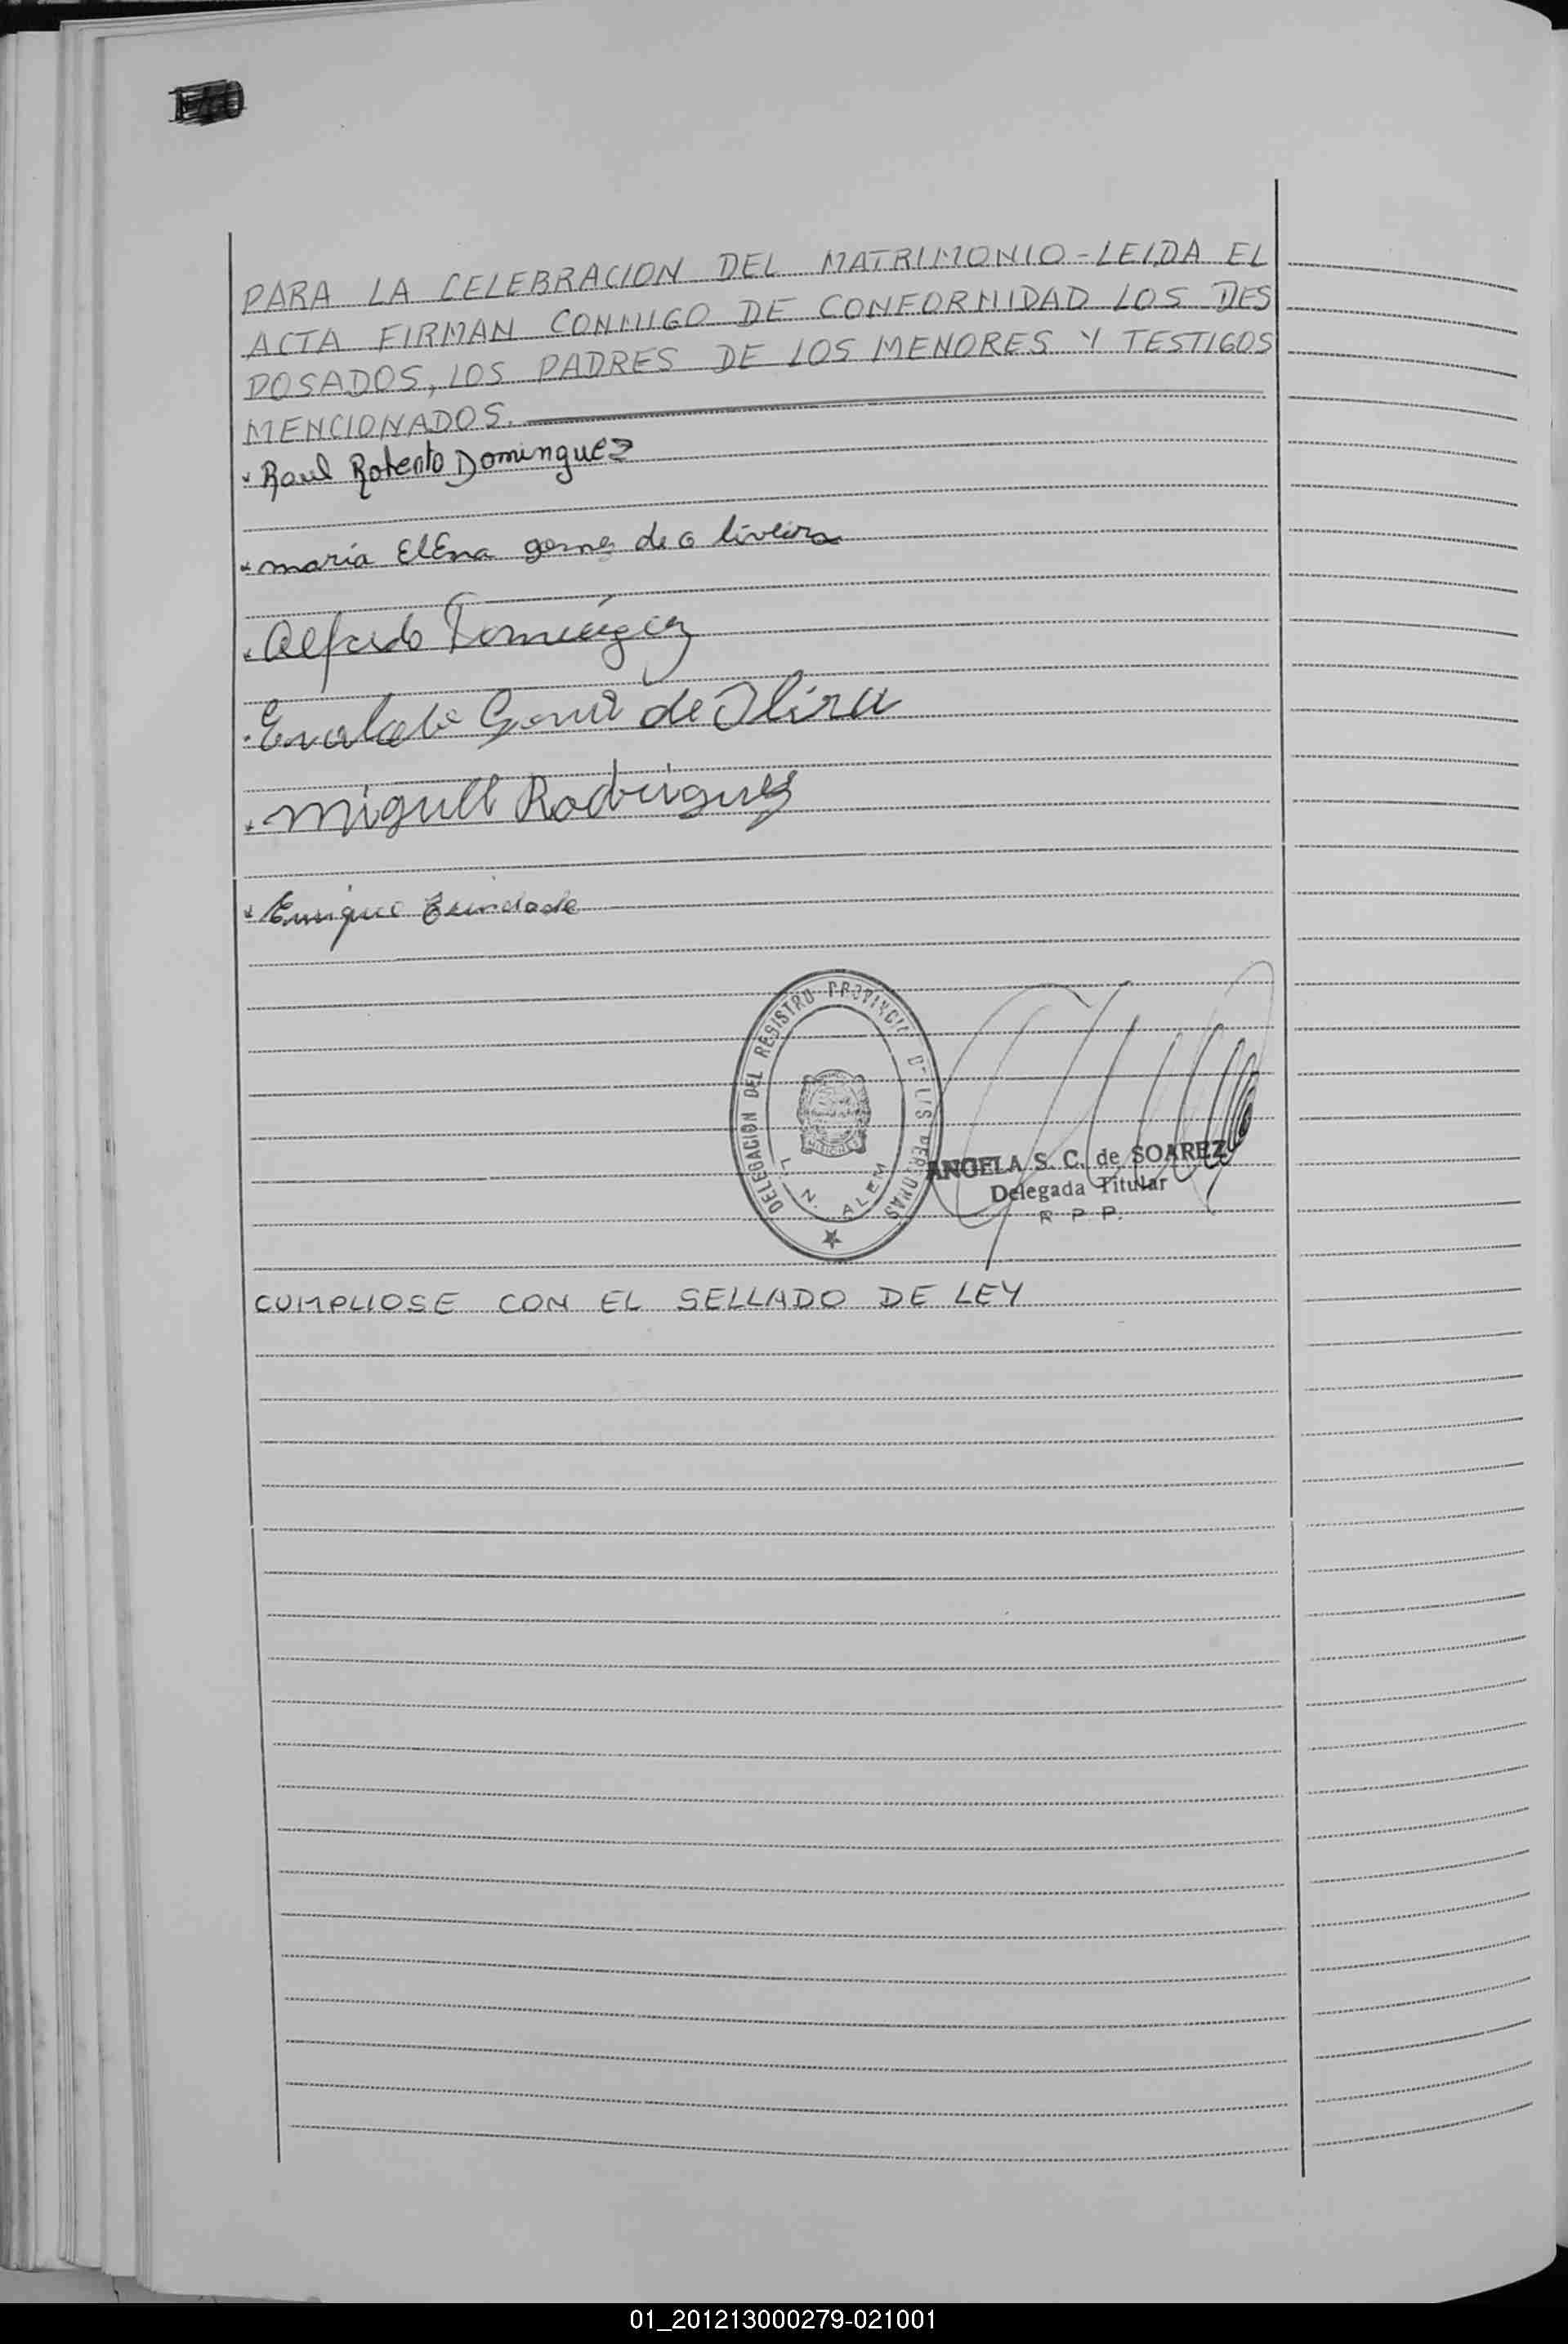 PARA LA CELEBRACION DEL MATRIMONIO-LEIDA EL
ACTA FIRMAN CONMIGO DE CONFORMIDAD LOS DES
POSADOS, LOS PADRES DE LOS MENORES Y TESTIGOS
MENCIONADOS.
Raul Roberto Dominguez
maria ElEna gomes de oliveira
Alfredo Dominguez
de
Miguell Rodrigues
Enrique
DELEGACION DEL REGISTRO PROVINCIAL DE LAS PERSONAS
MISIONES
L. N. ALEM
ANGELA S. C. de SOAREZ
Delegada Titular
R P P.
CUMPLIOSE CON EL SELLADO DE LEY
01_201213000279-021001